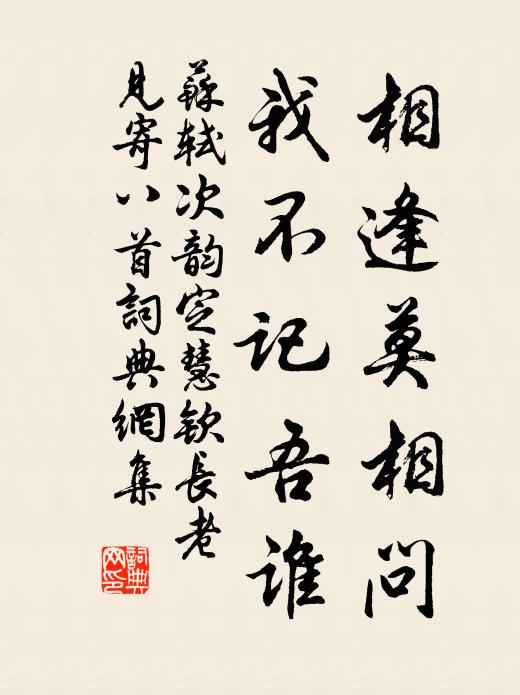 相逢莫相問
我不記吾誰
蘇軾次韵定慧欽長老
見寄八首詞典網集
詞典網印